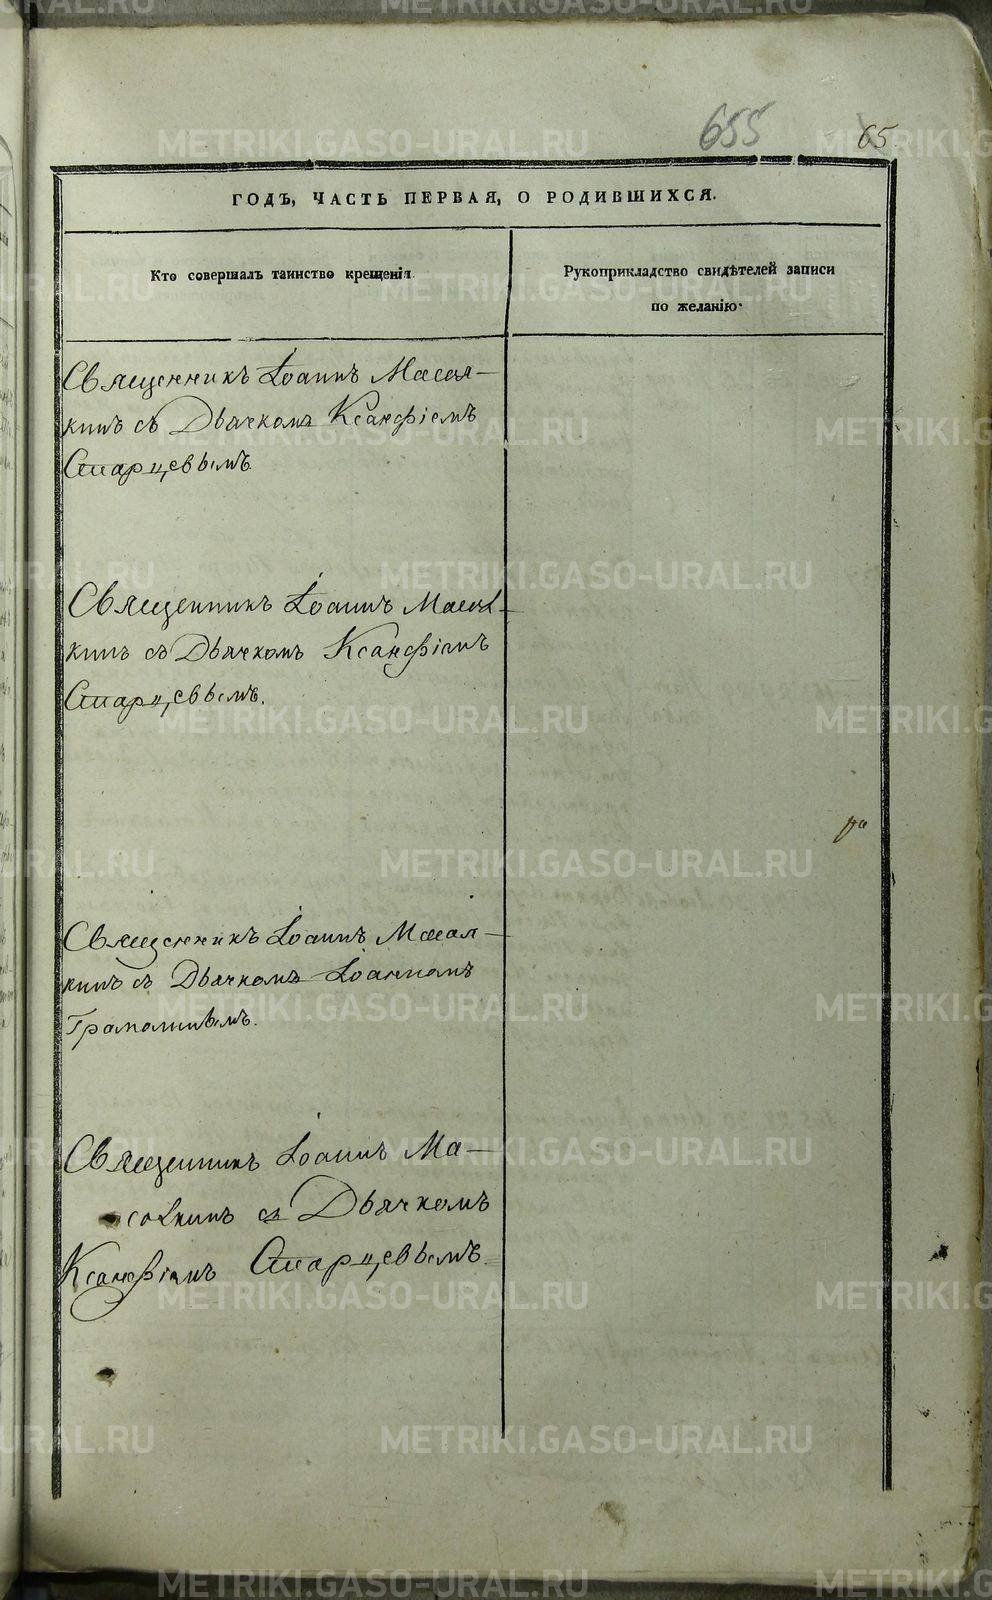 655
65.
ГОДЪ, ЧАСТЬ ПЕРВАЯ, О РОДИВШИХСЯ.
Кто совершалъ таинство крещенія.
Рукоприкладство свидѣтелей записи
по желанію.
Священникъ Іоаннъ Масал-
кинъ съ Дьячкомъ Ксанѳіемъ
Старцевымъ
Священникъ Іоаннъ Масал-
кинъ съ Дьячкомъ Ксанѳіемъ
Старцевымъ.
Священникъ Іоаннъ Масал-
кинъ съ Дьячкомъ Іоанномъ
Грамолинымъ.
Священникъ Іоаннъ Ма-
салкинъ съ Дьячкомъ
Ксанѳіемъ Старцевымъ
METRIKI.GASO-URAL.RU